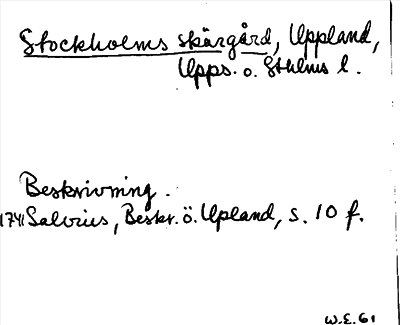 Stockholms skärgård, Uppland,
Upps. o. Sthlms l.
Beskrivning.
1741 Salvius, Beskr. ö. Upland, s. 10 f.
W.E. 61